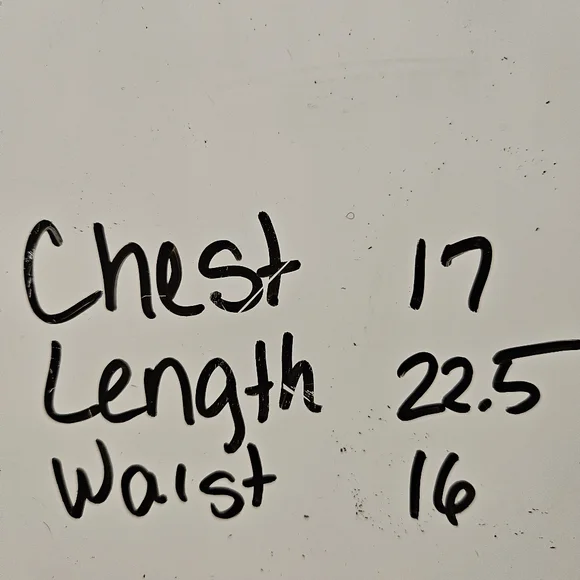 Chest 17
Length 22.5
Waist 16